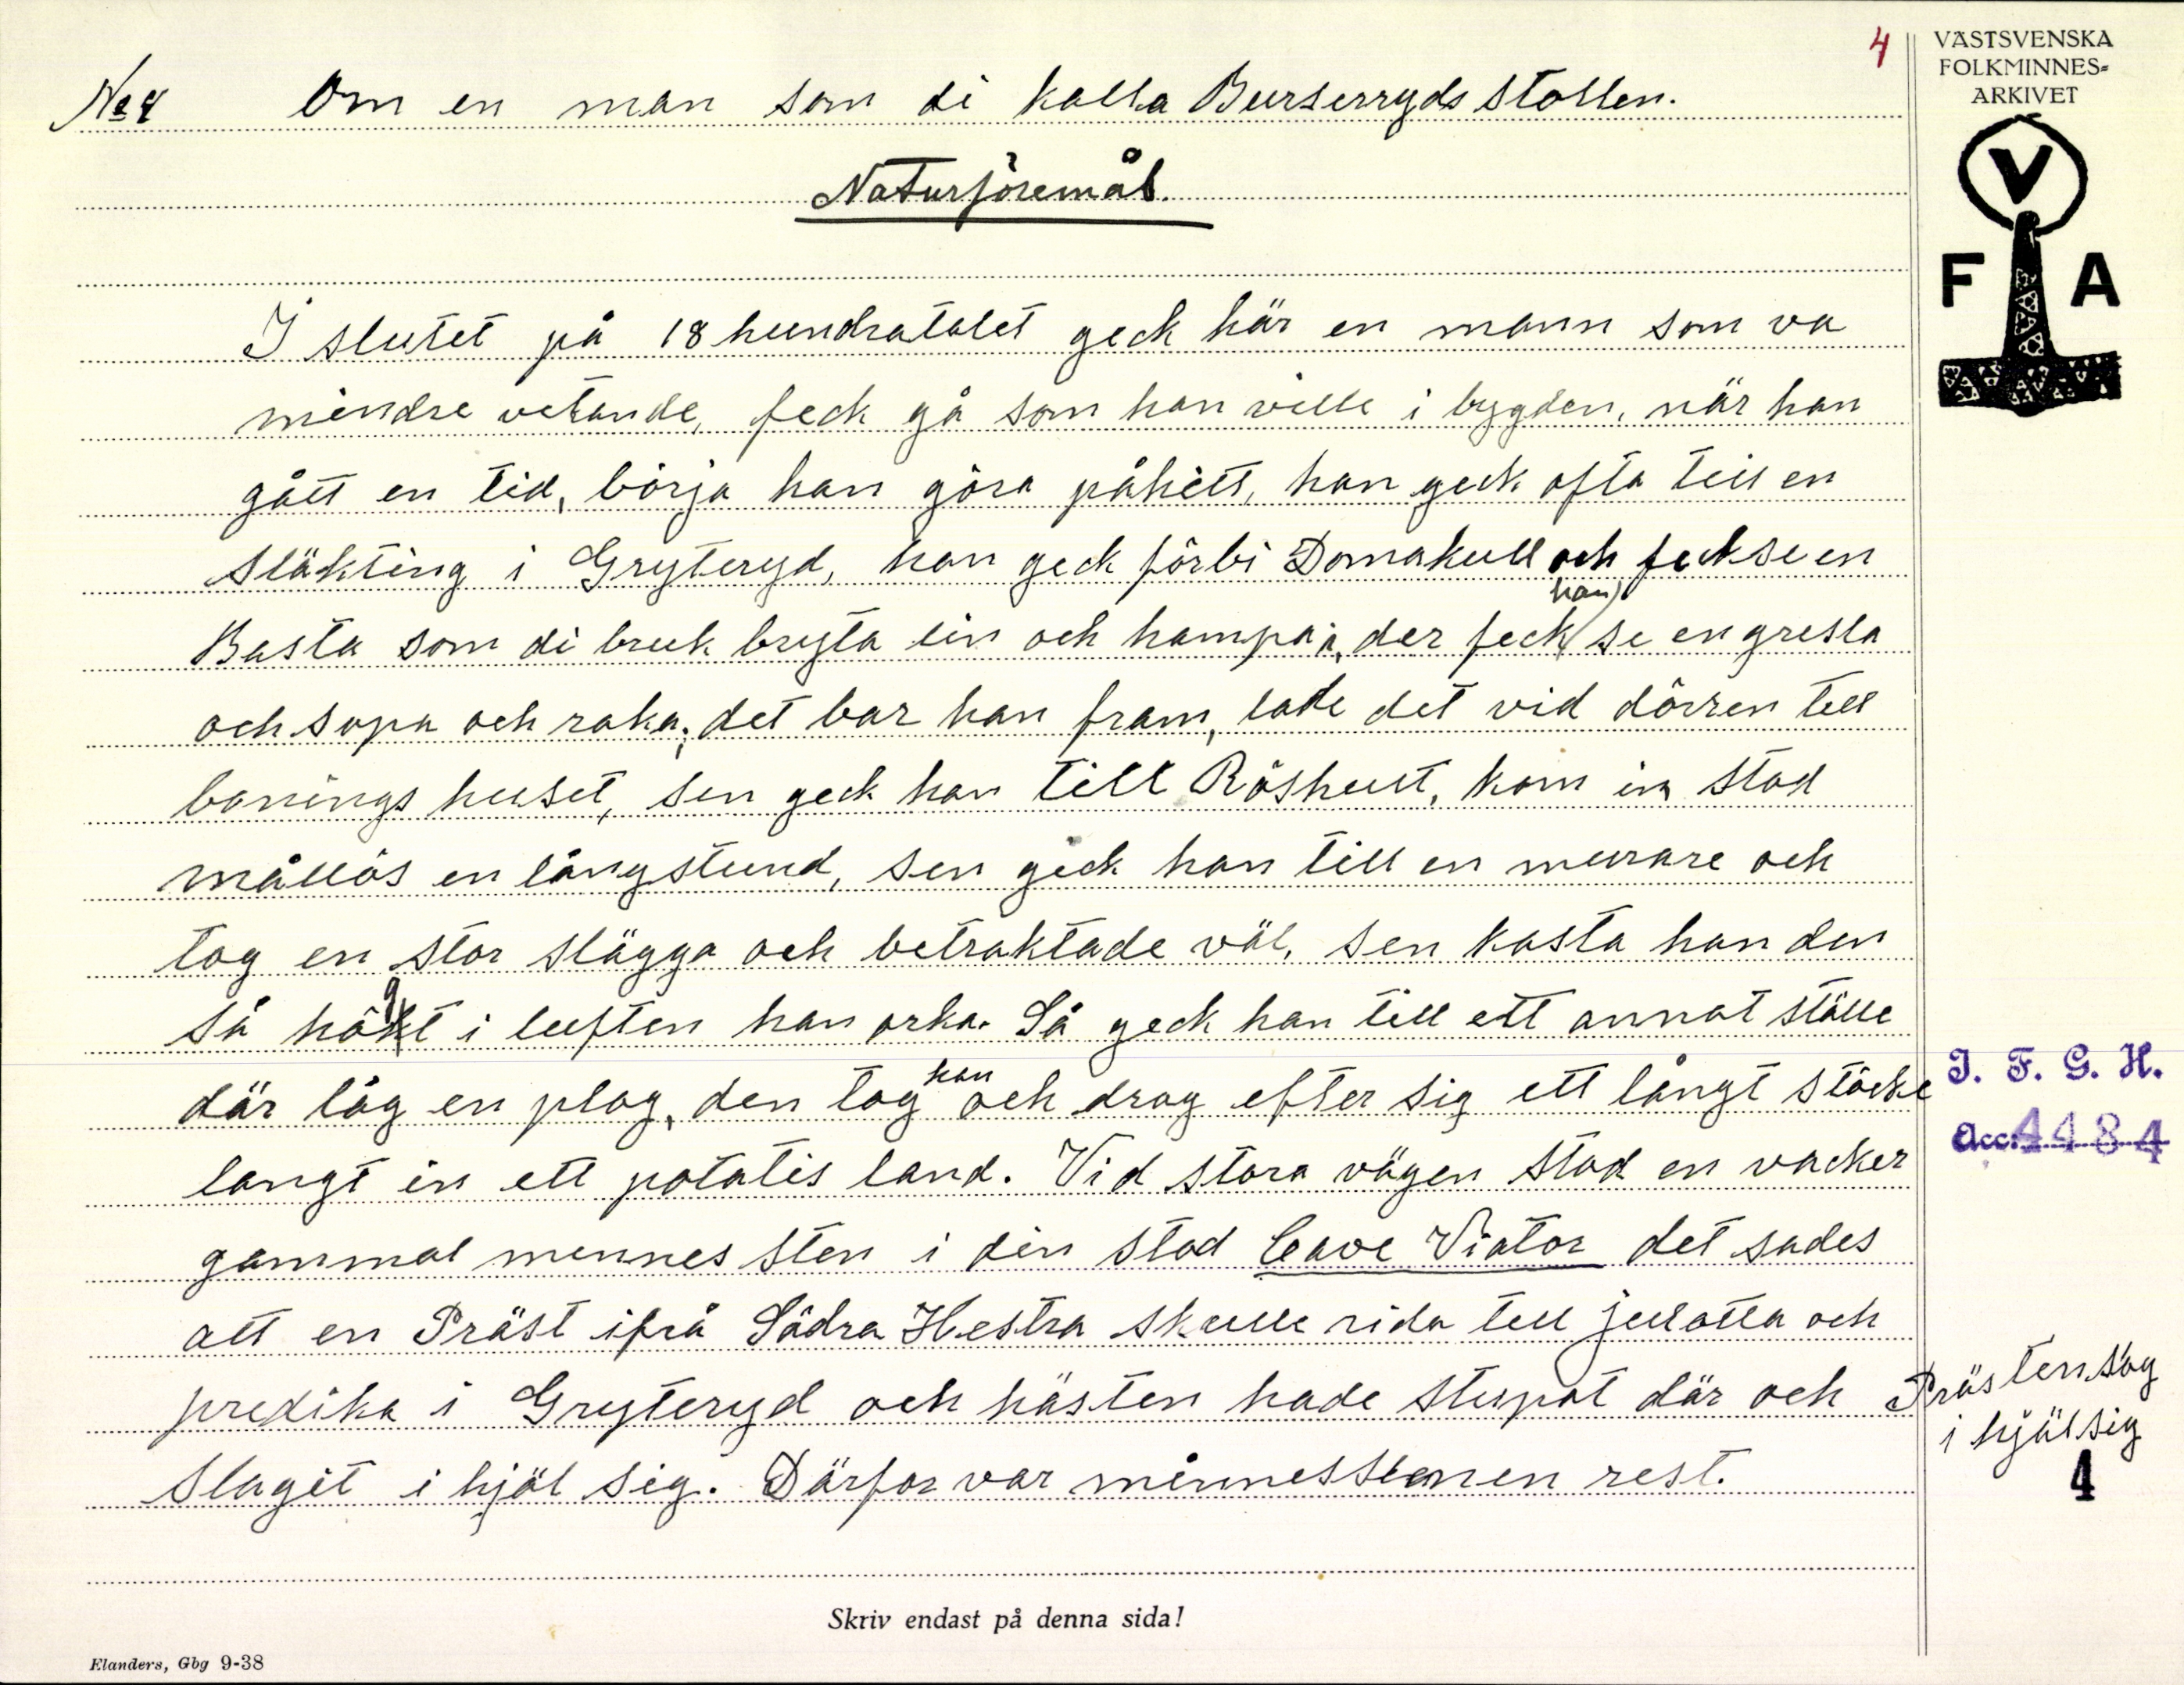 4
VÄSTSVENSKA
FOLKMINNES-
ARKIVET
V
F A
No 4 Om en man som di kalla Burserryds Stollen.
Naturföremål.
I slutet på 18 hundratalet geck här en mann som va
mindre vetande, feck gå som han ville i bygden, när han
gått en tid, börja han göra påhitt, han geck ofta till en
släkting i Gryteryd, han geck förbi Domakull och feck se en
Basta som di bruk bryta lin och hampa i, der feck han se en gresla
och sopa och raka; det bar han fram, lade det vid dörren till
bonings huset, sen geck han till Röshult, kom in stod
mållös en långstund, sen geck han till en murare och
tog en stor slägga och betraktade väl, sen kasta han den
så högt i luften han orka. Så geck han till ett annat ställe
där låg en plog, den tog han och drog efter sig ett långt stöcke
langt in ett potatis land. Vid stora vägen stod en vacker
gammal mennes sten i den stod Cave Viator det sades
att en Präst ifrå Södra Hestra skulle rida till julotta och
predika i Gryteryd och hästen hade stupat där och Prästen slog
i hjäl sig
slagit i hjäl sig. Därfor var minnesstenen rest.
I. F. G. H.
Acc. 4484
4
Skriv endast på denna sida!
Elanders, Gbg 9-38